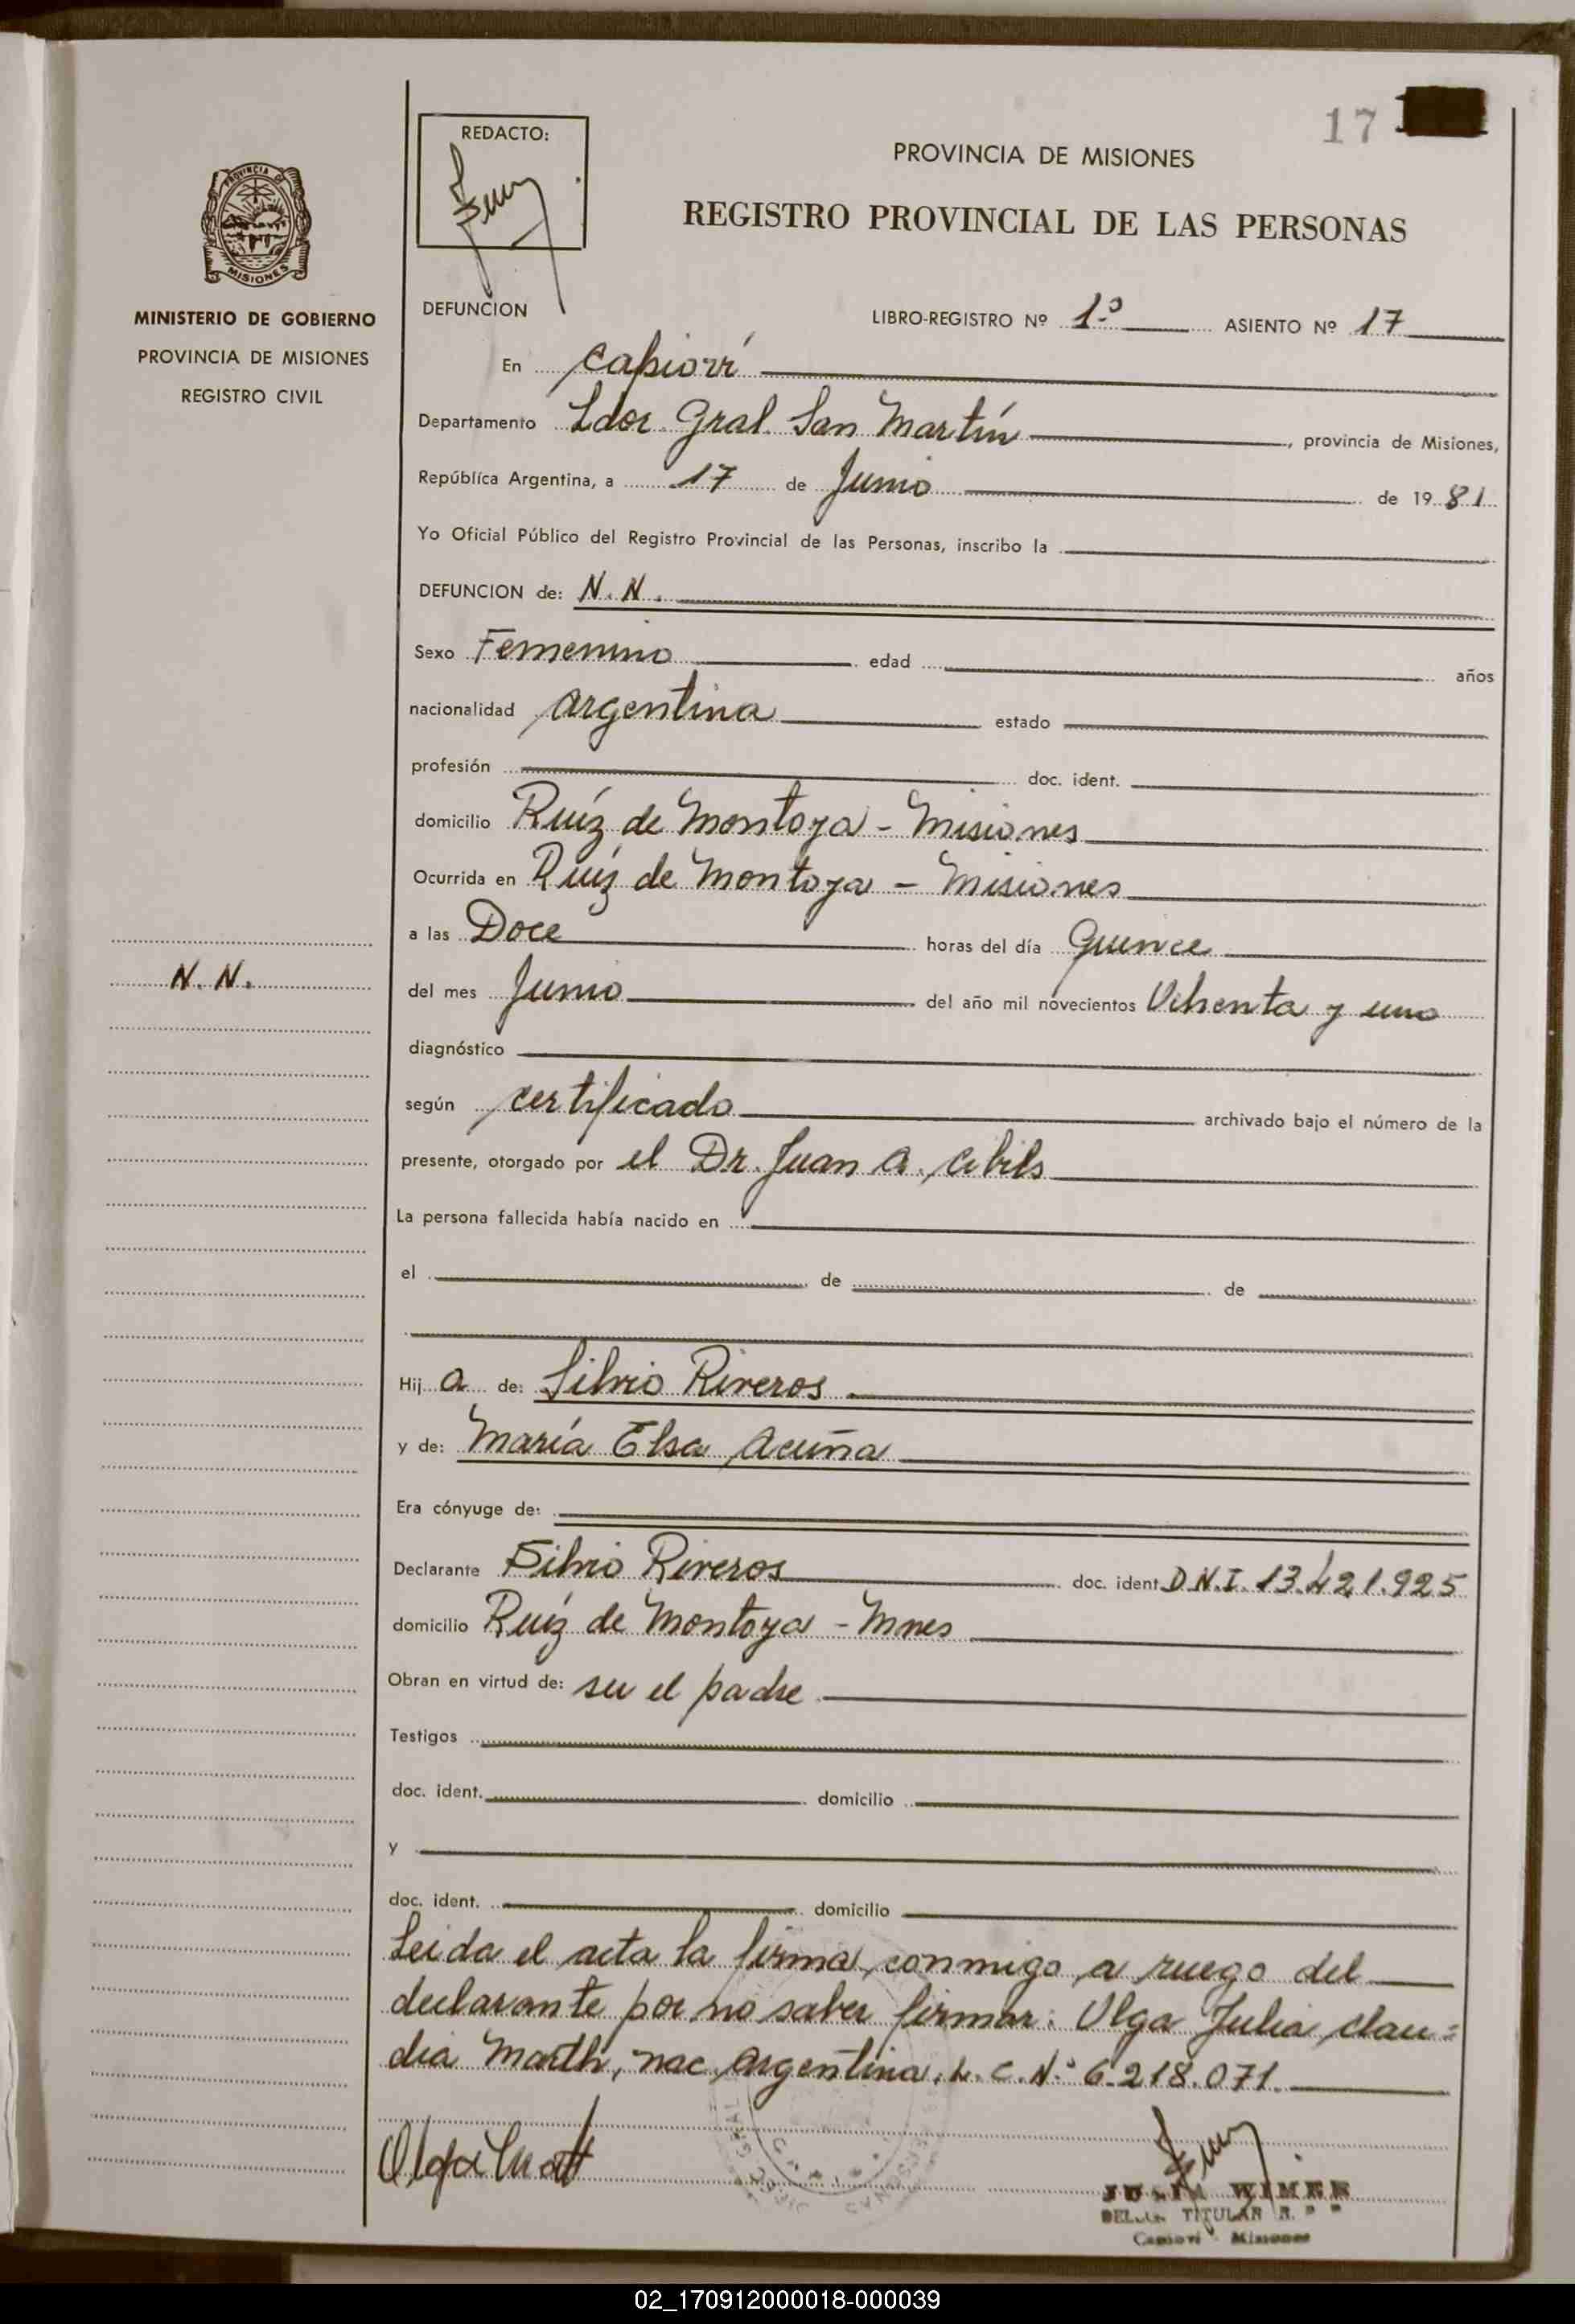 17
REDACTO:
PROVINCIA DE MISIONES
REGISTRO PROVINCIAL DE LAS PERSONAS
PROVINCIA DE
MISIONES
MINISTERIO DE GOBIERNO
PROVINCIA DE MISIONES
REGISTRO CIVIL
DEFUNCION
LIBRO-REGISTRO Nº 1º ASIENTO Nº 17
En Capioví
Departamento Ldor. Gral. San Martín, provincia de Misiones,
República Argentina, a 17 de Junio de 1981
Yo Oficial Público del Registro Provincial de las Personas, inscribo la
DEFUNCION de: N. N.
Sexo Femenino edad años
nacionalidad argentina estado
profesión doc. ident.
domicilio Ruíz de Montoya - Misiones
Ocurrida en Ruíz de Montoya - Misiones
a las Doce horas del día Quince
N. N.
del mes Junio del año mil novecientos Ochenta y uno
diagnóstico
según certificado archivado bajo el número de la
presente, otorgado por el Dr. Juan A. Cibils
La persona fallecida había nacido en
el de de
Hij a de: Silvio Riveros
y de: María Elsa Acuña
Era cónyuge de:
Declarante Silvio Riveros doc. ident. D.N.I. 13.421.925
domicilio Ruíz de Montoya - Mnes
Obran en virtud de: ser el padre
Testigos
doc. ident. domicilio
y
doc. ident. domicilio
Leida el acta la firma, conmigo a ruego del
declarante por no saber firmar: Olga Julia Clau=
dia Marth, nac. argentina, L. C. Nº 6.218.071.
WIMER
TITULAR R. P. P.
Capioví - Misiones
02_170912000018-000039